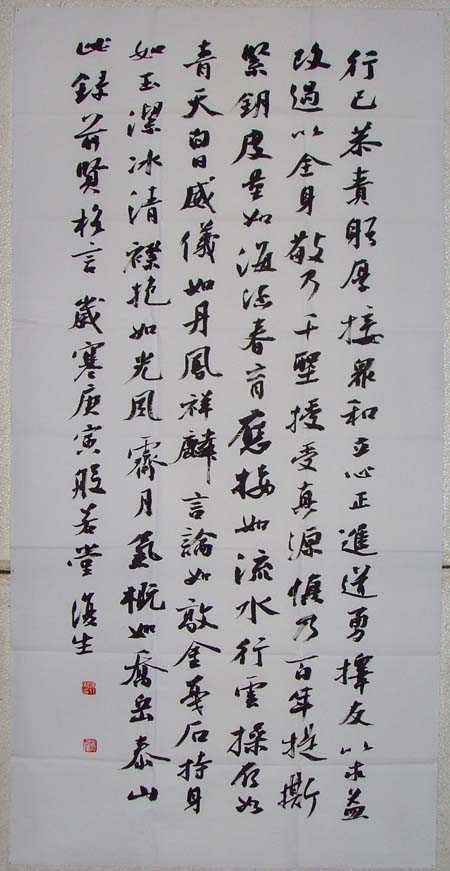 行己恭責躬厚接衆和立心正進道勇擇友以求益
改過以全身敬乃千聖授受真源慎乃百年提撕
緊鑰度量如海涵春育應接如流水行雲操存如
青天白日威儀如丹鳳祥麟言論如敲金戛石持身
如玉潔冰清襟抱如光風霽月氣概如喬岳泰山
此録前賢格言歲寒庚寅般若堂生